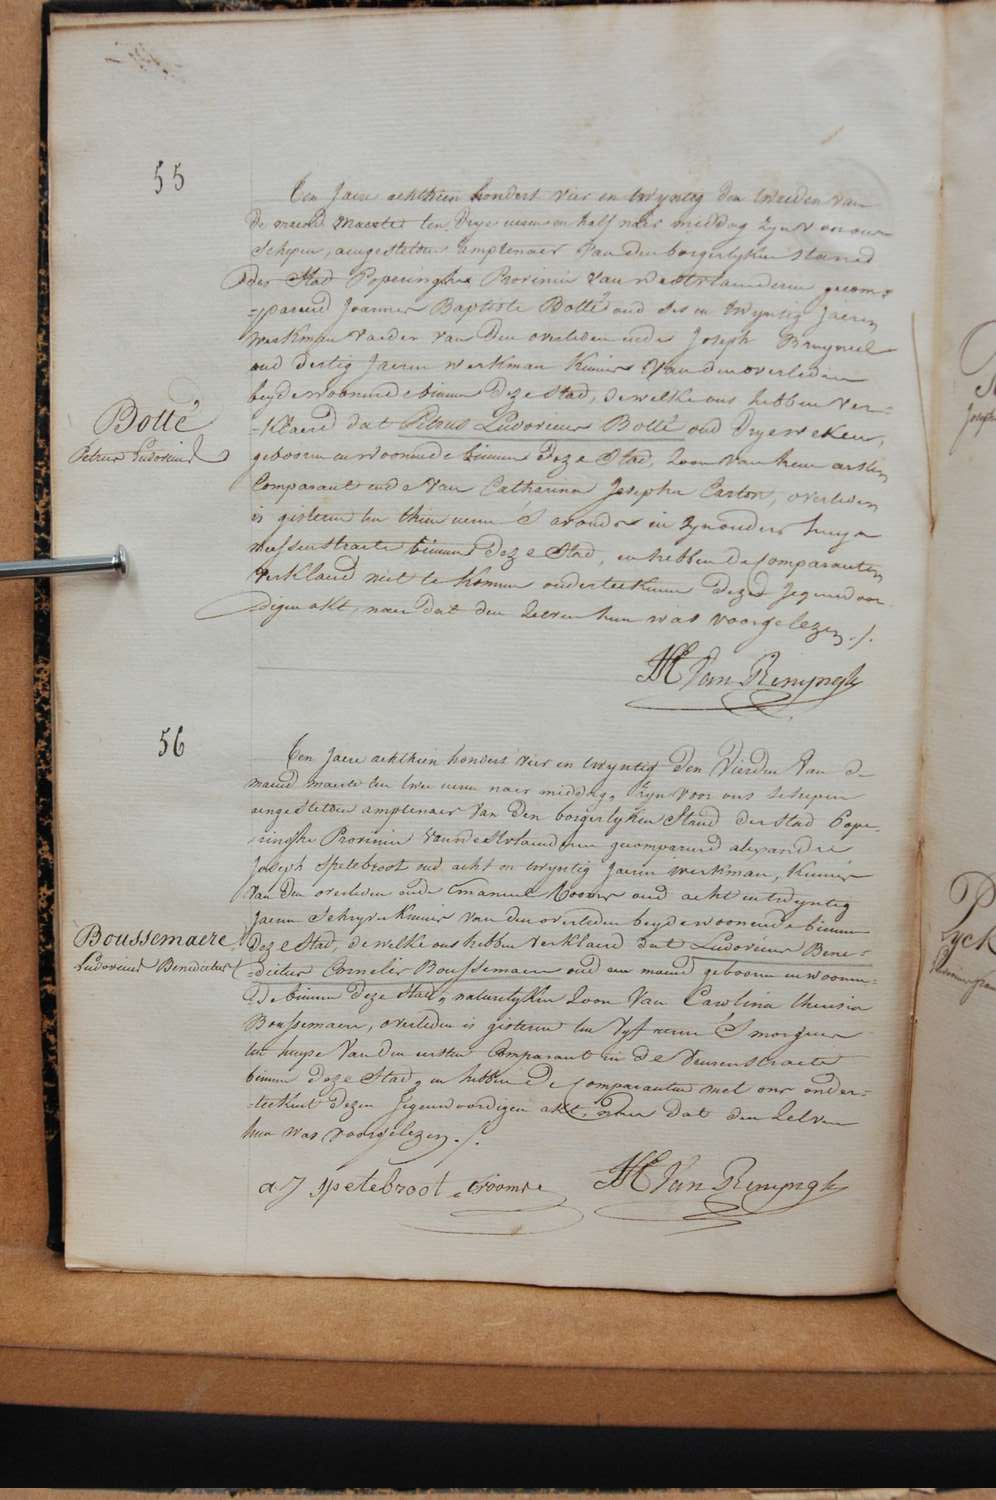 55
Den Jaere achthien hondert vier en twyntig den tweeden van
de maend maerte ten drye ueren en half naer middag zyn voor ons
Schepen, aengestelden Amptenaer van den borgerlyken stand
der Stad Poperinghe Provincie van westvlaenderen gecom-
-pareerd Joannes Baptiste Botté oud ses en twyntig Jaeren
werkman vaeder van den overleden ende Joseph Bruyneel
oud dertig Jaeren werkman kennis van den overleden
beyde woonende binnen deze Stad, dewelke ons hebben ver-
-klaerd dat Petrus Ludovicus Botté oud drye weken,
Botté
Petrus Ludovicus
geboren en woonende binnen deze Stad, Zoon van hem eersten
Comparant ende van Catharina Josepha Carton, overleden
is gisteren ten thien ueren S'avonds in zyn ouders huys
binnen deze Stad, en hebben de Comparanten
verklaerd niet te konnen onderteekenen deze Jegenwoor-
-digen akt, naer dat den Zelven hun was voorgelezen ./.
Van Renynghe
56
Den Jaere achthien hondert vier en twyntig den Vierden Van de
maend maerte ten twee ueren naer middag, Zyn voor ons schepen
aengestelden amptenaer van den borgerlyken Stand der Stad Pope-
-ringhe Provincie van westvlaenderen gecompareerd alexandre
Joseph Spetebroot oud acht en twyntig Jaeren werkman, kennis
van den overleden ende Emanuel Coomre oud acht en twyntig
Jaeren Schryver kennis van den overleden beyde woonende binnen
deze Stad, dewelke ons hebben verklaerd dat Ludovicus Bene-
Boussemaere
Ludovicus Benedictus
-dictus Cornelis Boussemaere oud een maend geboren en woonen-
-de binnen deze Stad, naturelyken Zoon Van Carolina theresia
Boussemaere, overleden is gisteren ten vyf ueren S'morgens
ten huyse Van den eersten Comparant in de straete
binnen deze Stad, en hebben de Comparanten met ons onder-
-teekent dezen Jegenwoordigen akt, naer dat den Zelven
hun was voorgelezen ./.
a J spetebroot e Coomre Van Renynghe